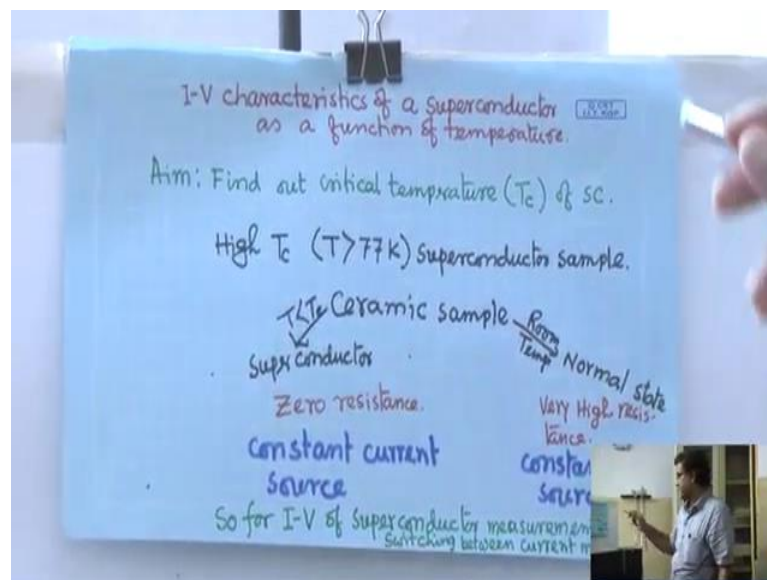 I-V characteristics of a superconductor
as a function of temperature.
Aim: Find out critical temprature (Tc) of SC.
High Tc (T>77K) Superconductor sample.
Ceramic sample
T<Tc
Room
Temp
Superconductor
Normal state
Zero resistance.
Very High resis-
tance.
constant current
source
So for I-V of superconductor
switching between current